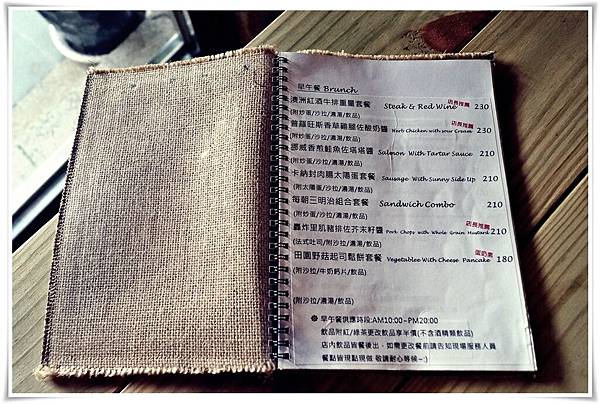 早午餐 Brunch
澳洲紅酒牛排重量套餐 Steak & Red Wine 店長推薦 230
(附炒蛋/沙拉/濃湯/飲品)
普羅旺斯香草雞腿佐酸奶醬 Herb Chicken with sour Cream 店長推薦 230
(附炒蛋/沙拉/濃湯/飲品)
挪威香煎鮭魚佐塔塔醬 Salmon With Tartar Sauce 210
(附炒蛋/沙拉/濃湯/飲品)
卡納封肉腸太陽蛋套餐 Sausage With Sunny Side Up 210
(附太陽蛋/沙拉/濃湯/飲品)
每朝三明治組合套餐 Sandwich Combo 210
(附炒蛋/沙拉/濃湯/飲品)
轟炸里肌豬排佐芥末籽醬 Pork Chops with Whole Grain Mustard 店長推薦 210
(法式吐司/附沙拉/濃湯/飲品)
田園野菇起司鬆餅套餐 Vegetablee With Cheese Pancake 蛋奶素 180
(附沙拉/牛奶鈣片/飲品)
(附沙拉/濃湯/飲品)
早午餐供應時段:AM10:00~PM20:00
飲品附紅/綠茶更改飲品享半價(不含酒精類飲品)
店內飲品皆餐後出，如需更改餐前請告知現場服務人員
餐點皆現點現做 敬請耐心等候~:)